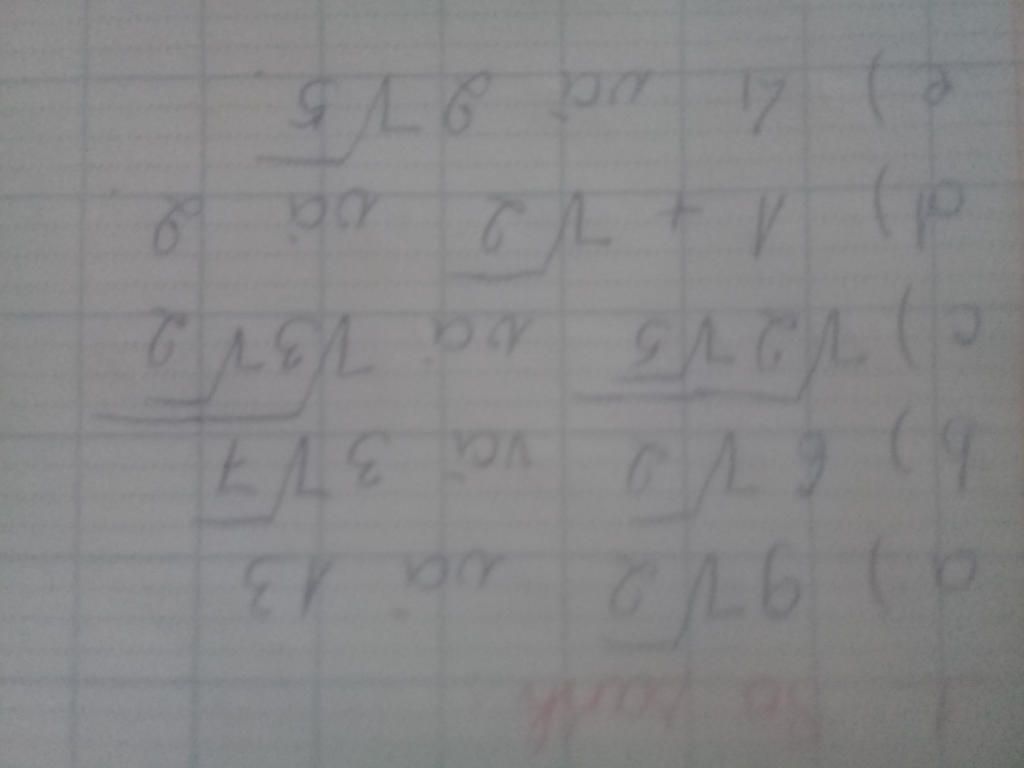 1 So sánh
a) 9√2 và 13
b) 6√2 và 3√7
c) √2√5 và √3√2
d) 1 + √2 và 2
e) 4 và 2√5